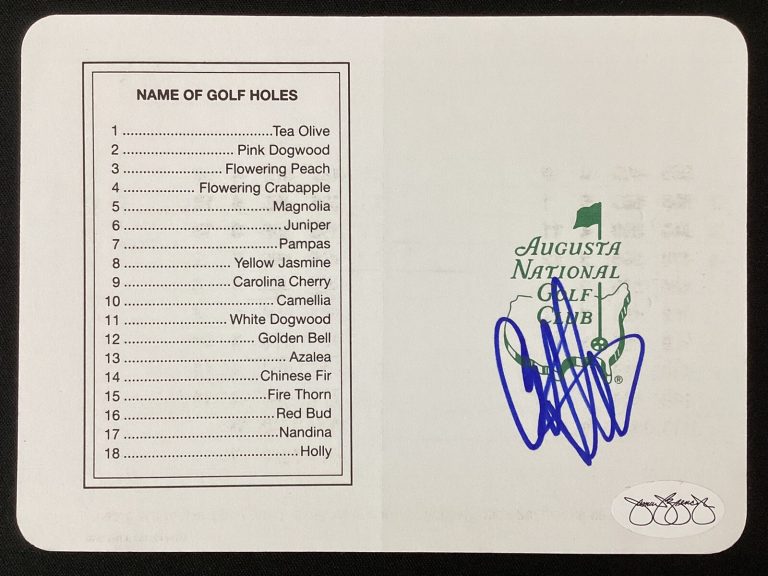 NAME OF GOLF HOLES
1 ........................................Tea Olive
2 .............................. Pink Dogwood
3 ........................... Flowering Peach
4 ................... Flowering Crabapple
5 ........................................ Magnolia
6 ...........................................Juniper
7 .........................................Pampas
8 ............................. Yellow Jasmine
9 ............................. Carolina Cherry
10 ........................................ Camellia
11 ............................ White Dogwood
12 ................................... Golden Bell
13 ............................................ Azalea
14 .................................... Chinese Fir
15 ......................................Fire Thorn
16 ........................................ Red Bud
17 .........................................Nandina
18 ...............................................Holly
AUGUSTA
NATIONAL
GOLF
CLUB
®